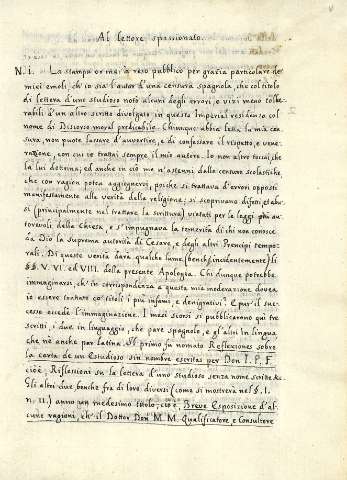 Al lettore spassionato.
N. I. La stampa or mai à reso pubblico per grazia particolare de'
miei emoli, ch'io sia l'autor d'una censura spagnola, che col titolo
di lettera d'uno studioso notò alcuni degli errori, e vizi meno tolle-
rabili d'un altro scritto divolgato in questa Imperial residenza col
nome di Discorso moral predicabile. Chiunque abbia letta la mia cen-
sura, non puote lasciare d'avvertire, e di confessare il rispetto, e vene-
razione, con cui io trattai sempre il mio autore. Io non altro tocai, che
la lui dottrina; ed anche in ciò me n'astenni dalle censure scolastiche,
che con ragion potea aggiugnervi, poichè si trattava d'errori opposti
manifestamente alle verità della religione; si scoprivano difetti, ed abu-
si (principalmente nel trattare la scrittura) vietati per le leggi più au-
torevoli della Chiesa, e s'impugnava la temerità di chi non conosce
da Dio la suprema autorità di Cesare, e degli altri Prencipi tempo-
rali. Di queste verità darà qualche lume (benchè incidentemente) li
§§. V. VI. ed VIII. della presente Apologia. Chi dunque potrebbe
immaginarsi, ch'in corrispondenza a questa mia moderazione dovea
io essere trattato co' titoli i più infami, e denigrativi? E pur il suc-
cesso eccede l'immaginazione. I mesi scorsi si pubblicaron qui tre
scritti, i due in linguaggio, che pare spagnolo, e gl'altri in lingua,
che nè anche par latina. Il primo fu nomato Reflexiones sobre
la carta de un Estudioso sin nombre escritas por Don I. P. F.
cioè, Riflessioni su la lettera d'uno studioso senza nome scritte &c.
Gli altri due benchè fra di loro diversi (come si mostrerà nel §. I.
n. 11.) anno un medesimo titolo; cioè, Breve Esposizione d'al-
cune ragioni, ch'il Dottor Don M. M. Qualificatore, e Consultore